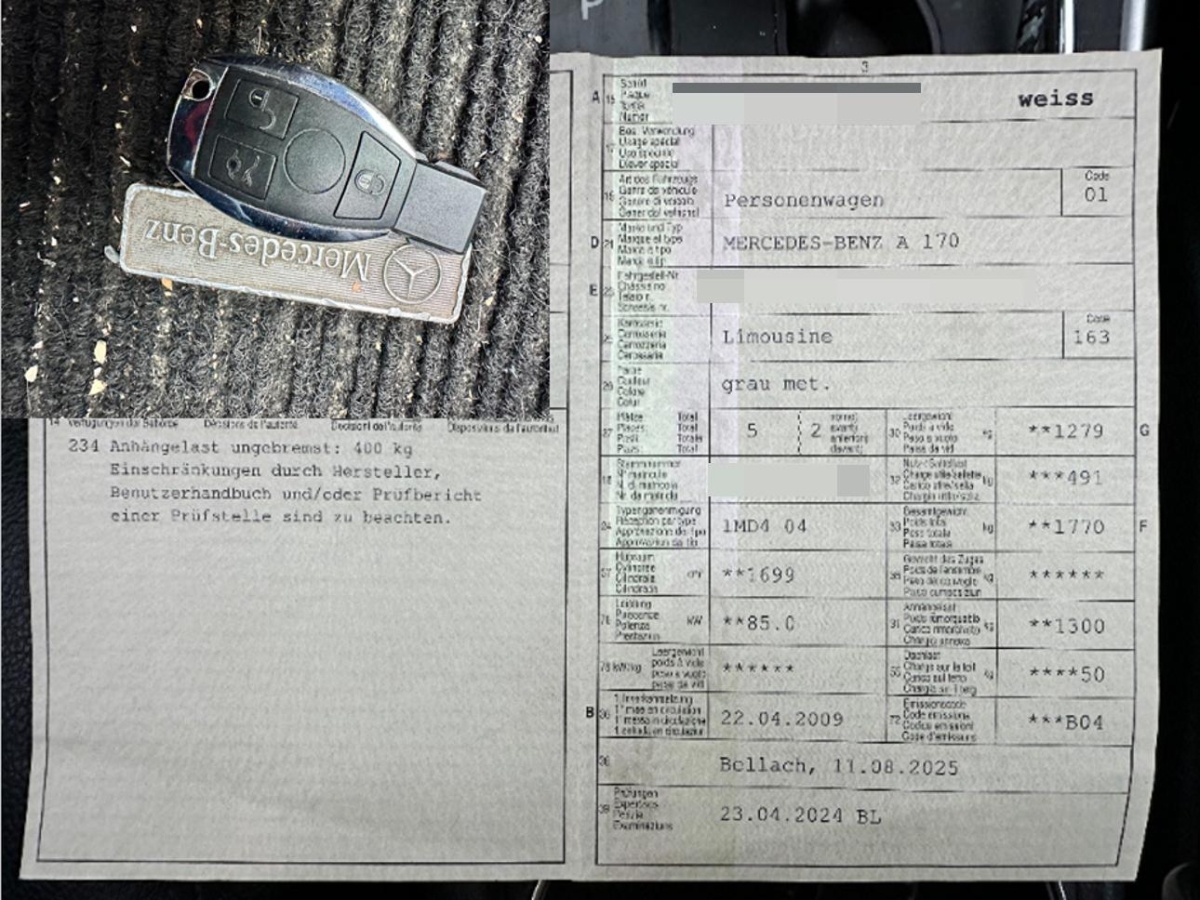 P
Mercedes-Benz
14 Verfügungen der Behörde Décisions de l'autorité Decisioni dell'autorità Disposiziuns da l'autoritad
234 Anhängelast ungebremst: 400 kg
Einschränkungen durch Hersteller,
Benutzerhandbuch und/oder Prüfbericht
einer Prüfstelle sind zu beachten.
3
A 15 Schild
Plaque
Targa
Numer
weiss
17 Bes. Verwendung
Usage spécial
Uso speciale
Diever spezial
Art des Fahrzeugs
Genre de véhicule
Genere di veicolo
Gener dal vehichel
Personenwagen
Code
01
D 21 Marke und Typ
Marque et type
Marca e tipo
Marca e tip
MERCEDES-BENZ A 170
E 23 Fahrgestell-Nr.
Châssis no
Telaio n.
Schassis nr.
25 Karosserie
Carrosserie
Carrozzeria
Carossaria
Limousine
Code
163
26 Farbe
Couleur
Colore
Colur
grau met.
27 Plätze: Total
Places: Total
Posti: Totale
Plazs: Total
5 2 vorne:
avant:
anteriori:
davant:
30 Leergewicht
Poids à vide
Peso a vuoto
Paisa da vid
kg
**1279
G
18 Stammnummer
N° matricule
N. di matricola
Nr. da matricla
32 Nutz-/Sattellast
Charge utile/sellette
Carico utile/sella
Chargia nizza/sella
kg
***491
24 Typengenehmigung
Réception par type
Approvazione del tipo
Approvaziun da tip
1MD4 04
33 Gesamtgewicht
Poids total
Peso totale
Paisa totala
kg
**1770
F
37 Hubraum
Cylindrée
Cilindrata
Cilindrada
cm³
**1699
35 Gewicht des Zuges
Poids de l'ensemble
Peso del convoglio
Paisa cumposiziun
kg
******
76 Leistung
Puissance
Potenza
Prestaziun
kW
**85.0
31 Anhängelast
Poids remorquable
Carico rimorchiato
Chargia annexa
kg
**1300
78 kW/kg Leergewicht
poids à vide
peso a vuoto
paisa da vid
******
55 Dachlast
Charge sur le toit
Carico sul tetto
Chargia sin il tetg
kg
****50
B 36 1. Inverkehrsetzung
1re mise en circulation
1a messa in circolazione
1. entrada en circulaziun
22.04.2009
72 Emissionscode
Code émissions
Codice emissioni
Code d'emissiuns
***B04
38
Bellach, 11.08.2025
39 Prüfungen
Expertises
Perizie
Examinaziuns
23.04.2024 BL